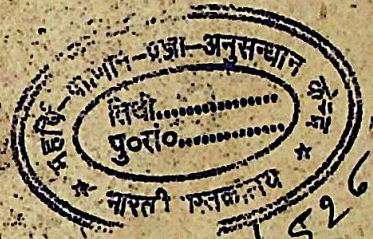 महर्षि-पाणिनि-प्रज्ञा-अनुसन्धान केन्द्र
तिथी................
पु०सं०................
★ भारती पुस्तकालय ★
1526